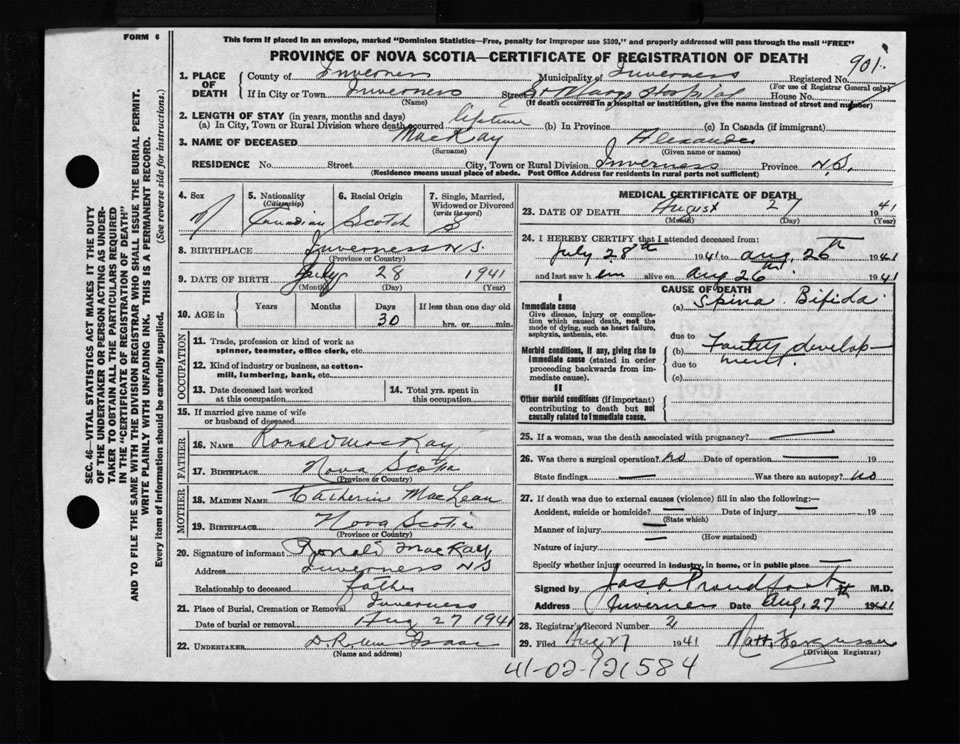 FORM 6
This form if placed in an envelope, marked "Dominion Statistics—Free, penalty for improper use $300," and properly addressed will pass through the mail "FREE"
PROVINCE OF NOVA SCOTIA—CERTIFICATE OF REGISTRATION OF DEATH
901
1. PLACE OF DEATH
County of Inverness Municipality of Inverness Registered No.
(For use of Registrar General only)
If in City or Town Inverness Street St Marys Hospital House No.
(Name) (If death occurred in a hospital or institution, give the name instead of street and number)
2. LENGTH OF STAY (in years, months and days)
(a) In City, Town or Rural Division where death occurred lifetime (b) In Province (c) In Canada (if immigrant)
3. NAME OF DECEASED MacKay Alexander
(Surname) (Given name or names)
RESIDENCE No. Street City, Town or Rural Division Inverness Province N.S.
(Residence means usual place of abode. Post Office Address for residents in rural parts not sufficient)
SEC. 46—VITAL STATISTICS ACT MAKES IT THE DUTY
OF THE UNDERTAKER OR PERSON ACTING AS UNDER-
TAKER TO OBTAIN ALL THE PARTICULARS REQUIRED
IN THE "CERTIFICATE OF REGISTRATION OF DEATH"
AND TO FILE THE SAME WITH THE DIVISION REGISTRAR WHO SHALL ISSUE THE BURIAL PERMIT.
WRITE PLAINLY WITH UNFADING INK. THIS IS A PERMANENT RECORD.
Every item of information should be carefully supplied. (See reverse side for instructions.)
4. Sex
5. Nationality (Citizenship) Canadian
6. Racial Origin Scotch
7. Single, Married, Widowed or Divorced (write the word) S
8. BIRTHPLACE Inverness N.S.
(Province or Country)
9. DATE OF BIRTH July 28 1941
(Month) (Day) (Year)
10. AGE in Years Months Days 30 If less than one day old
hrs. or min.
OCCUPATION
11. Trade, profession or kind of work as
spinner, teamster, office clerk, etc.
12. Kind of industry or business, as cotton-
mill, lumbering, bank, etc.
13. Date deceased last worked
at this occupation
14. Total yrs. spent in
this occupation
15. If married give name of wife
or husband of deceased
FATHER
16. NAME Ronald MacKay
17. BIRTHPLACE Nova Scotia
(Province or Country)
MOTHER
18. MAIDEN NAME Catherine MacLean
19. BIRTHPLACE Nova Scotia
(Province or Country)
20. Signature of informant Ronald MacKay
Address Inverness N S
Relationship to deceased father
21. Place of Burial, Cremation or Removal Inverness
Date of burial or removal Aug 27 1941
22. UNDERTAKER
(Name and address)
MEDICAL CERTIFICATE OF DEATH
23. DATE OF DEATH August 27 1941
(Month) (Day) (Year)
24. I HEREBY CERTIFY that I attended deceased from:
July 28th 1941 to Aug. 26th 1941
and last saw h im alive on Aug 26th 1941
CAUSE OF DEATH
I
Immediate cause
Give disease, injury or complica-
tion which caused death, not the
mode of dying, such as heart failure,
asphyxia, asthenia, etc.
(a) Spina Bifida
due to
Morbid conditions, if any, giving rise to
immediate cause (stated in order
proceeding backwards from im-
mediate cause).
(b) Faulty develop-
ment.
due to
(c)
II
Other morbid conditions (if important)
contributing to death but not
causally related to immediate cause.
25. If a woman, was the death associated with pregnancy?
26. Was there a surgical operation? no Date of operation 19
State findings Was there an autopsy? no
27. If death was due to external causes (violence) fill in also the following:—
Accident, suicide or homicide? Date of injury 19
(State which)
Manner of injury
(How sustained)
Nature of injury
Specify whether injury occurred in industry, in home, or in public place
Signed by Jas. A. Proudfoot M.D.
Address Inverness Date Aug. 27 1941
28. Registrar's Record Number
29. Filed Aug 27 1941 Matt. Ferguson
(Division Registrar)
41-02-121584